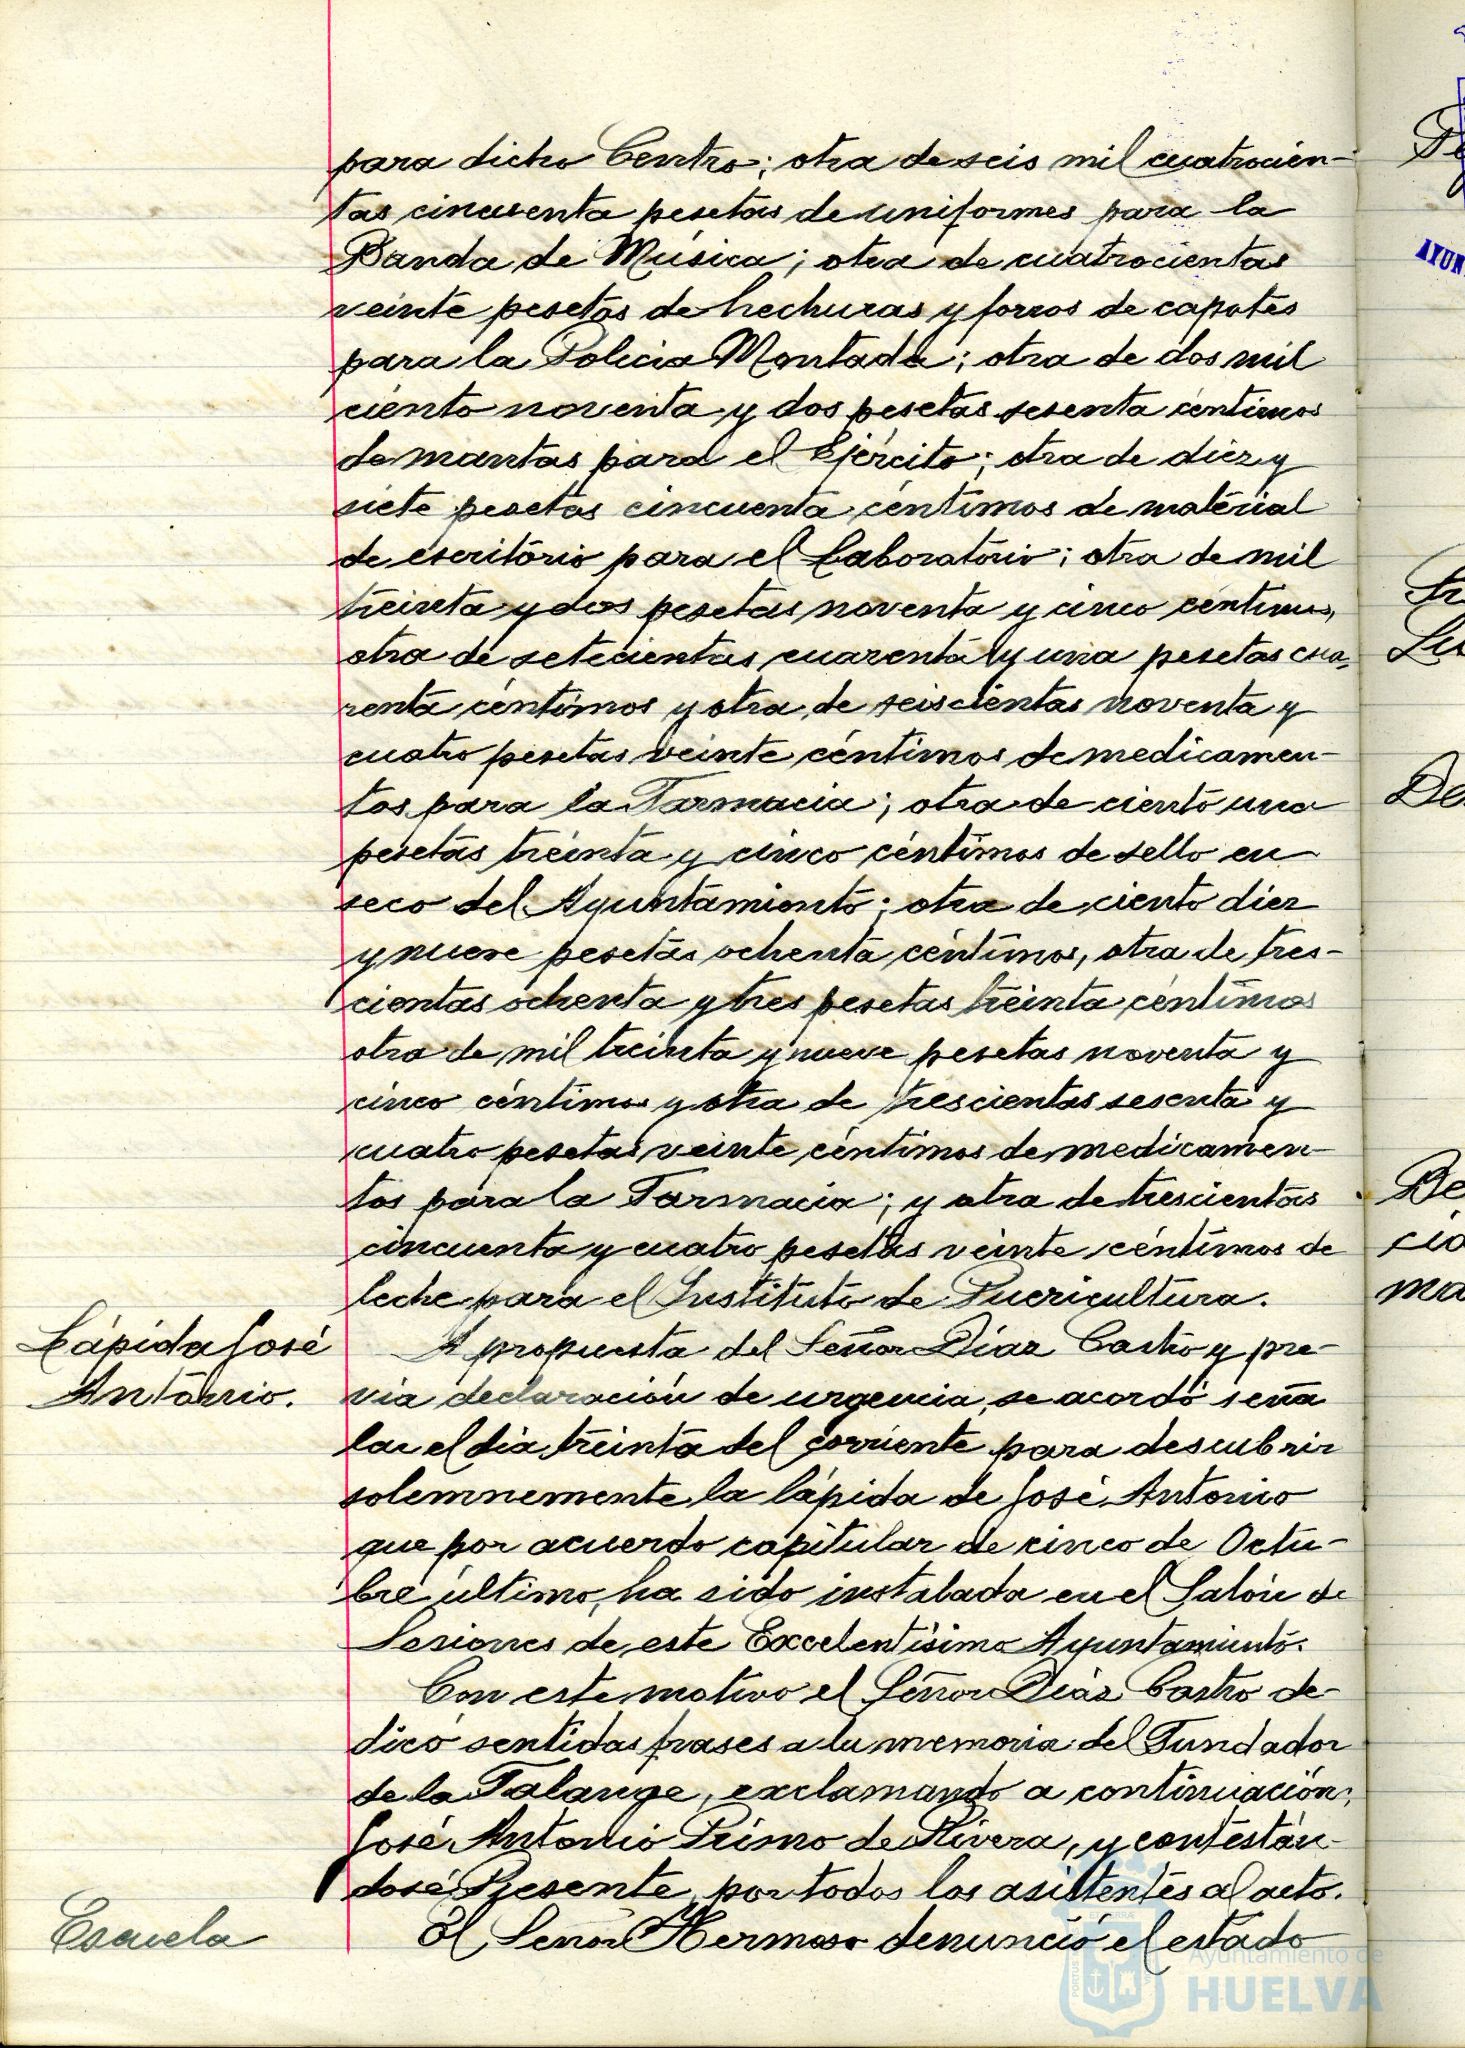 para dicho Centro; otra de seis mil cuatrocien-
tas cincuenta pesetas de uniformes para la
Banda de Música; otra de cuatrocientas
veinte pesetas de hechuras y forros de capotes
para la Policia Montada; otra de dos mil
ciento noventa y dos pesetas sesenta céntimos
de mantas para el Ejército; otra de diez y
siete pesetas cincuenta céntimos de material
de escritorio para el Laboratorio; otra de mil
treinta y dos pesetas noventa y cinco céntimos,
otra de setecientas cuarenta y una pesetas cua-
renta céntimos y otra de seiscientas noventa y
cuatro pesetas veinte céntimos de medicamen-
tos para la Farmacia; otra de ciento una
pesetas treinta y cinco céntimos de sello en
seco del Ayuntamiento; otra de ciento diez
y nueve pesetas ochenta céntimos, otra de tres-
cientas ochenta y tres pesetas treinta céntimos
otra de mil treinta y nueve pesetas noventa y
cinco céntimos y otra de trescientas sesenta y
cuatro pesetas veinte céntimos de medicamen-
tos para la Farmacia; y otra de trescientas
cincuenta y cuatro pesetas veinte céntimos de
leche para el Instituto de Puericultura.
Lápida José
Antonio.
A propuesta del Señor Díaz Castro y pre-
via declaración de urgencia, se acordó seña
lar el dia treinta del corriente para descubrir
solemnemente la lápida de José Antonio
que por acuerdo capitular de cinco de Octu-
bre último, ha sido instalada en el Salón de
Sesiones de este Excelentísimo Ayuntamiento.
Con este motivo el Señor Díaz Castro de-
dicó sentidas frases a la memoria del Fundador
de la Falange, exclamando a continuación,
José Antonio Primo de Rivera, y contestán-
dose Presente, por todos los asistentes al acto.
Escuela
El Señor Hermoso denunció el estado
Ayuntamiento de
HUELVA